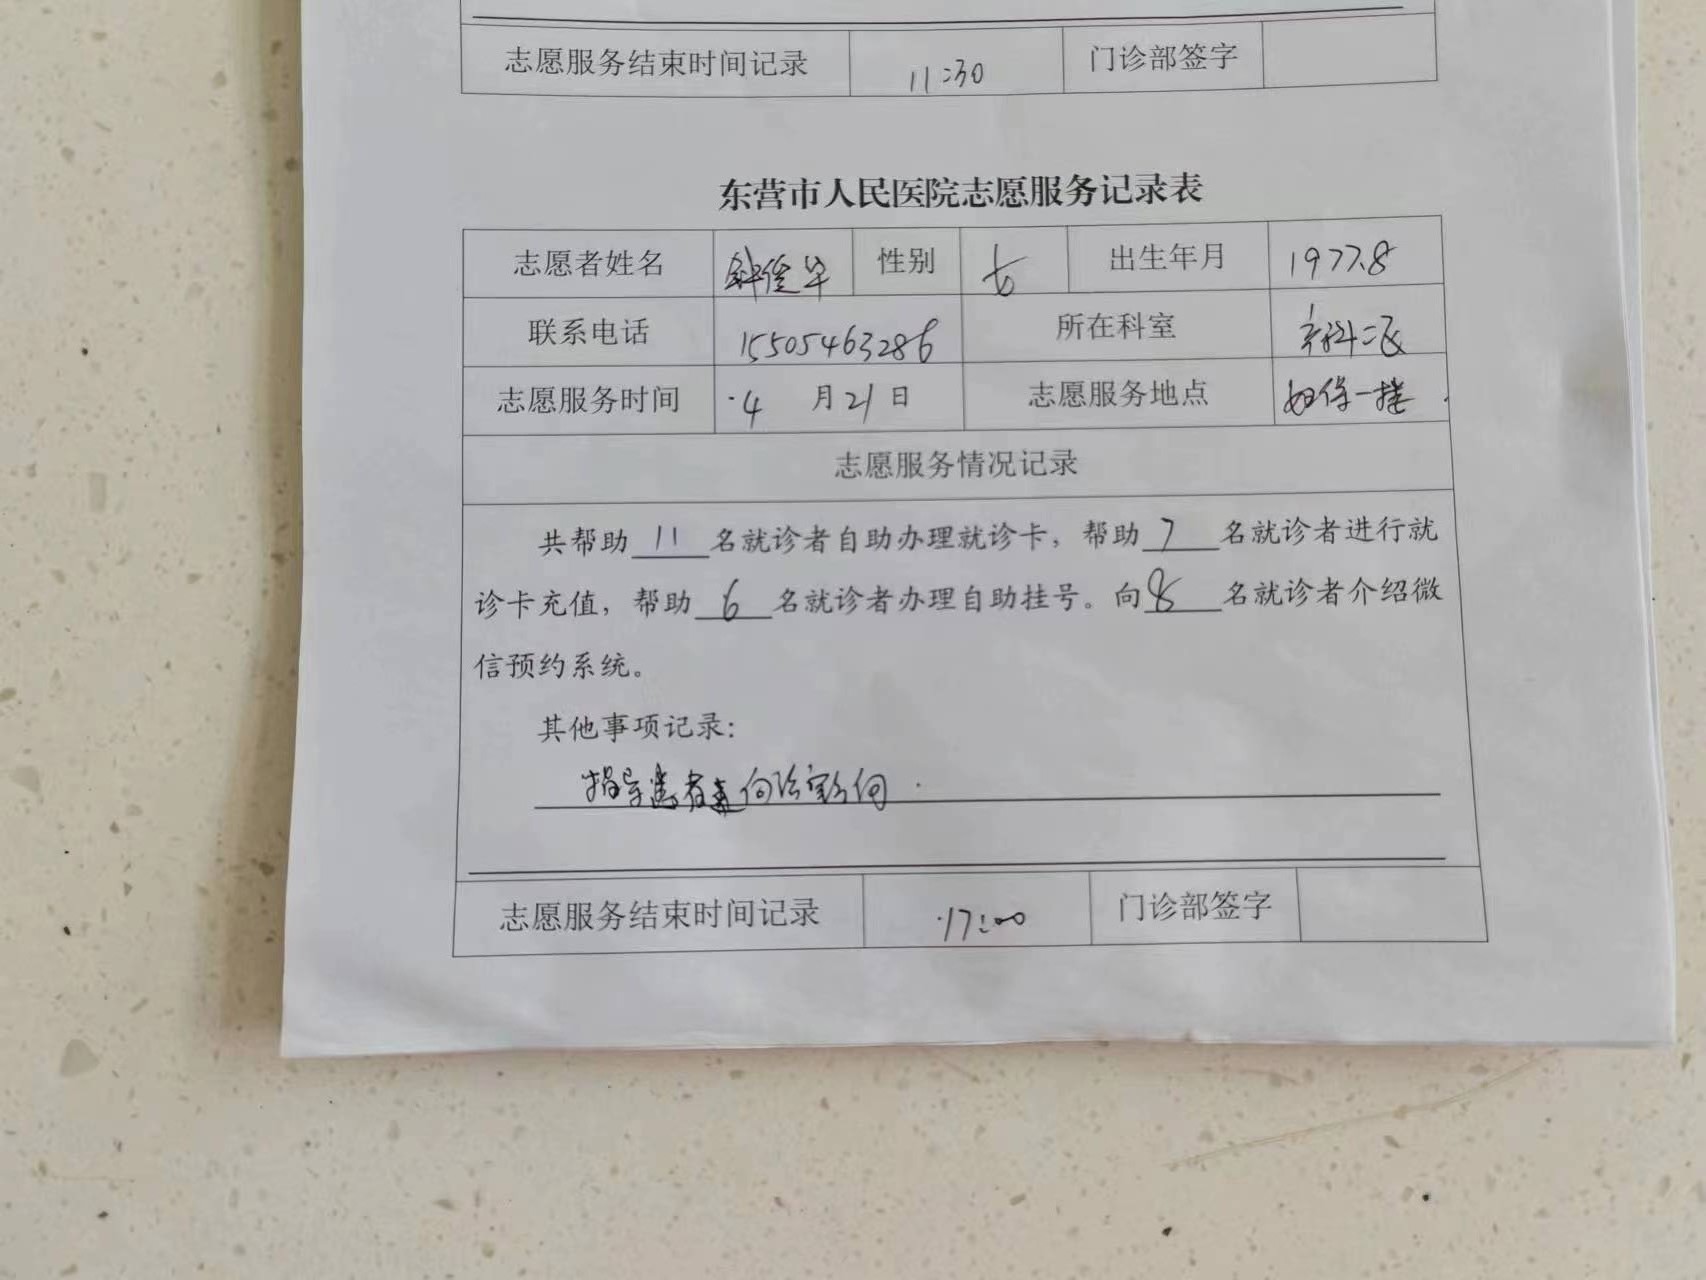 志愿服务结束时间记录 11:30 门诊部签字
东营市人民医院志愿服务记录表
志愿者姓名 性别 女 出生年月 1977.8
联系电话 15505463286 所在科室
志愿服务时间 4月21日 志愿服务地点 妇保一楼
志愿服务情况记录
共帮助 11 名就诊者自助办理就诊卡，帮助 7 名就诊者进行就
诊卡充值，帮助 6 名就诊者办理自助挂号。向 8 名就诊者介绍微
信预约系统。
其他事项记录：
指导患者
志愿服务结束时间记录 17:00 门诊部签字